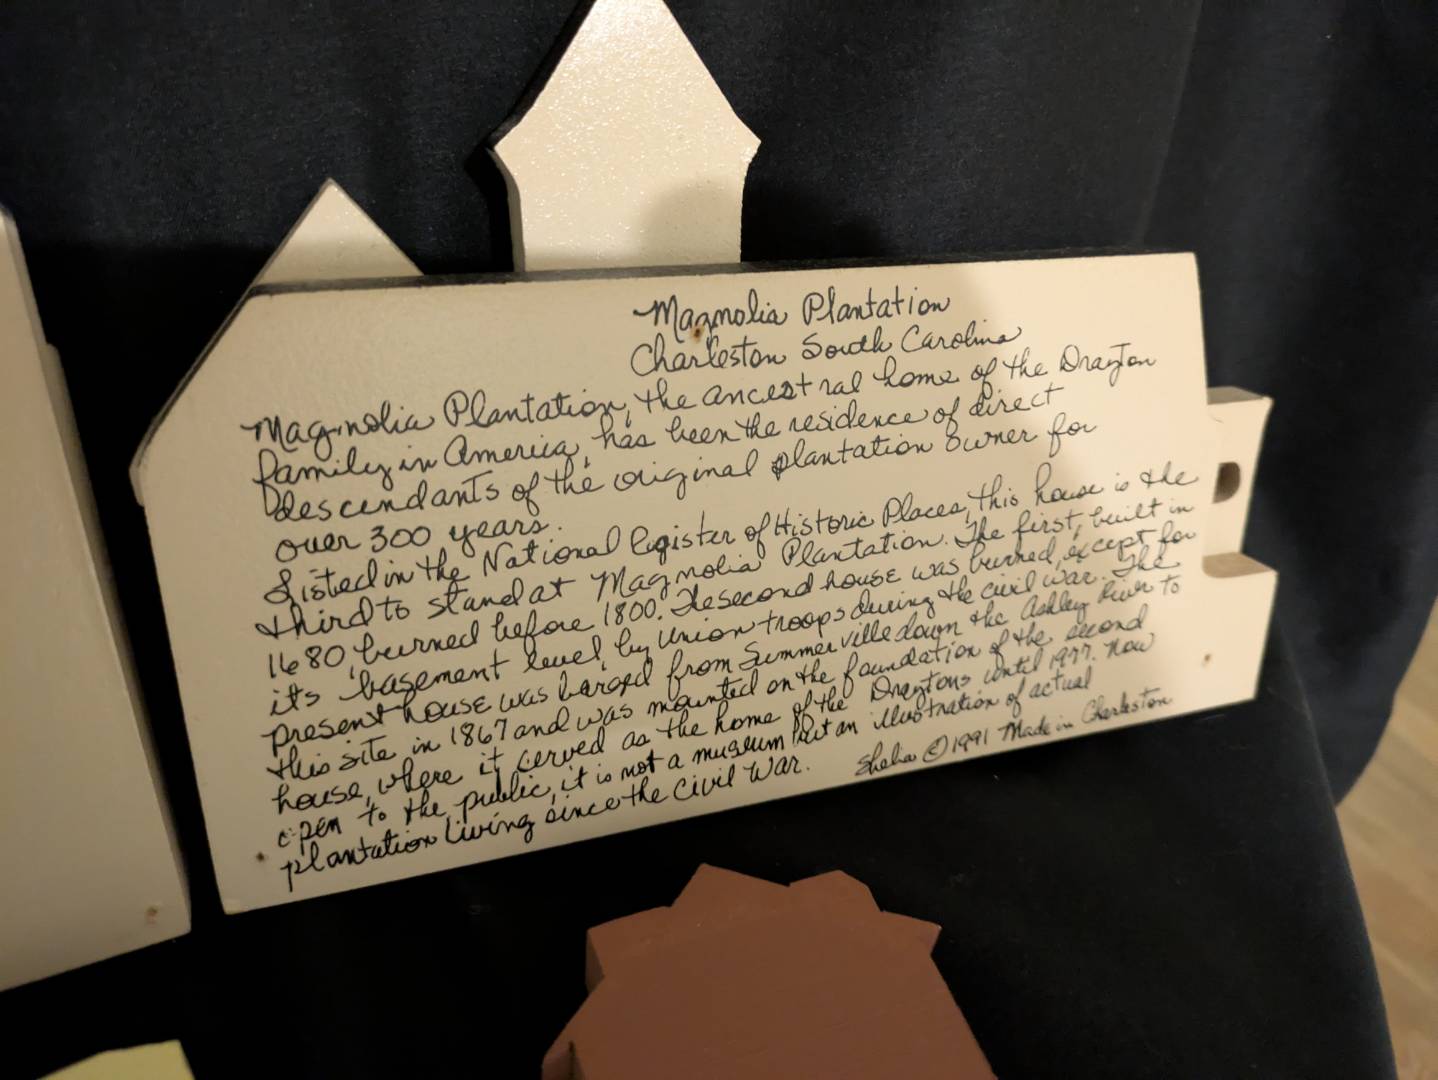 Magnolia Plantation
Charleston South Carolina
Magnolia Plantation, the ancestral home of the Drayton
family in America, has been the residence of direct
descendants of the original plantation owner for
over 300 years.
Listed in the National Register of Historic Places, this house is the
third to stand at Magnolia Plantation. The first, built in
1680, burned before 1800. The second house was burned, except for
its basement level, by Union troops during the civil war. The
present house was barged from Summerville down the Ashley River to
this site in 1867 and was mounted on the foundation of the second
house, where it served as the home of the Draytons until 1977. Now
open to the public, it is not a museum but an illustration of actual
plantation living since the Civil War.
Shelia © 1991 Made in Charleston